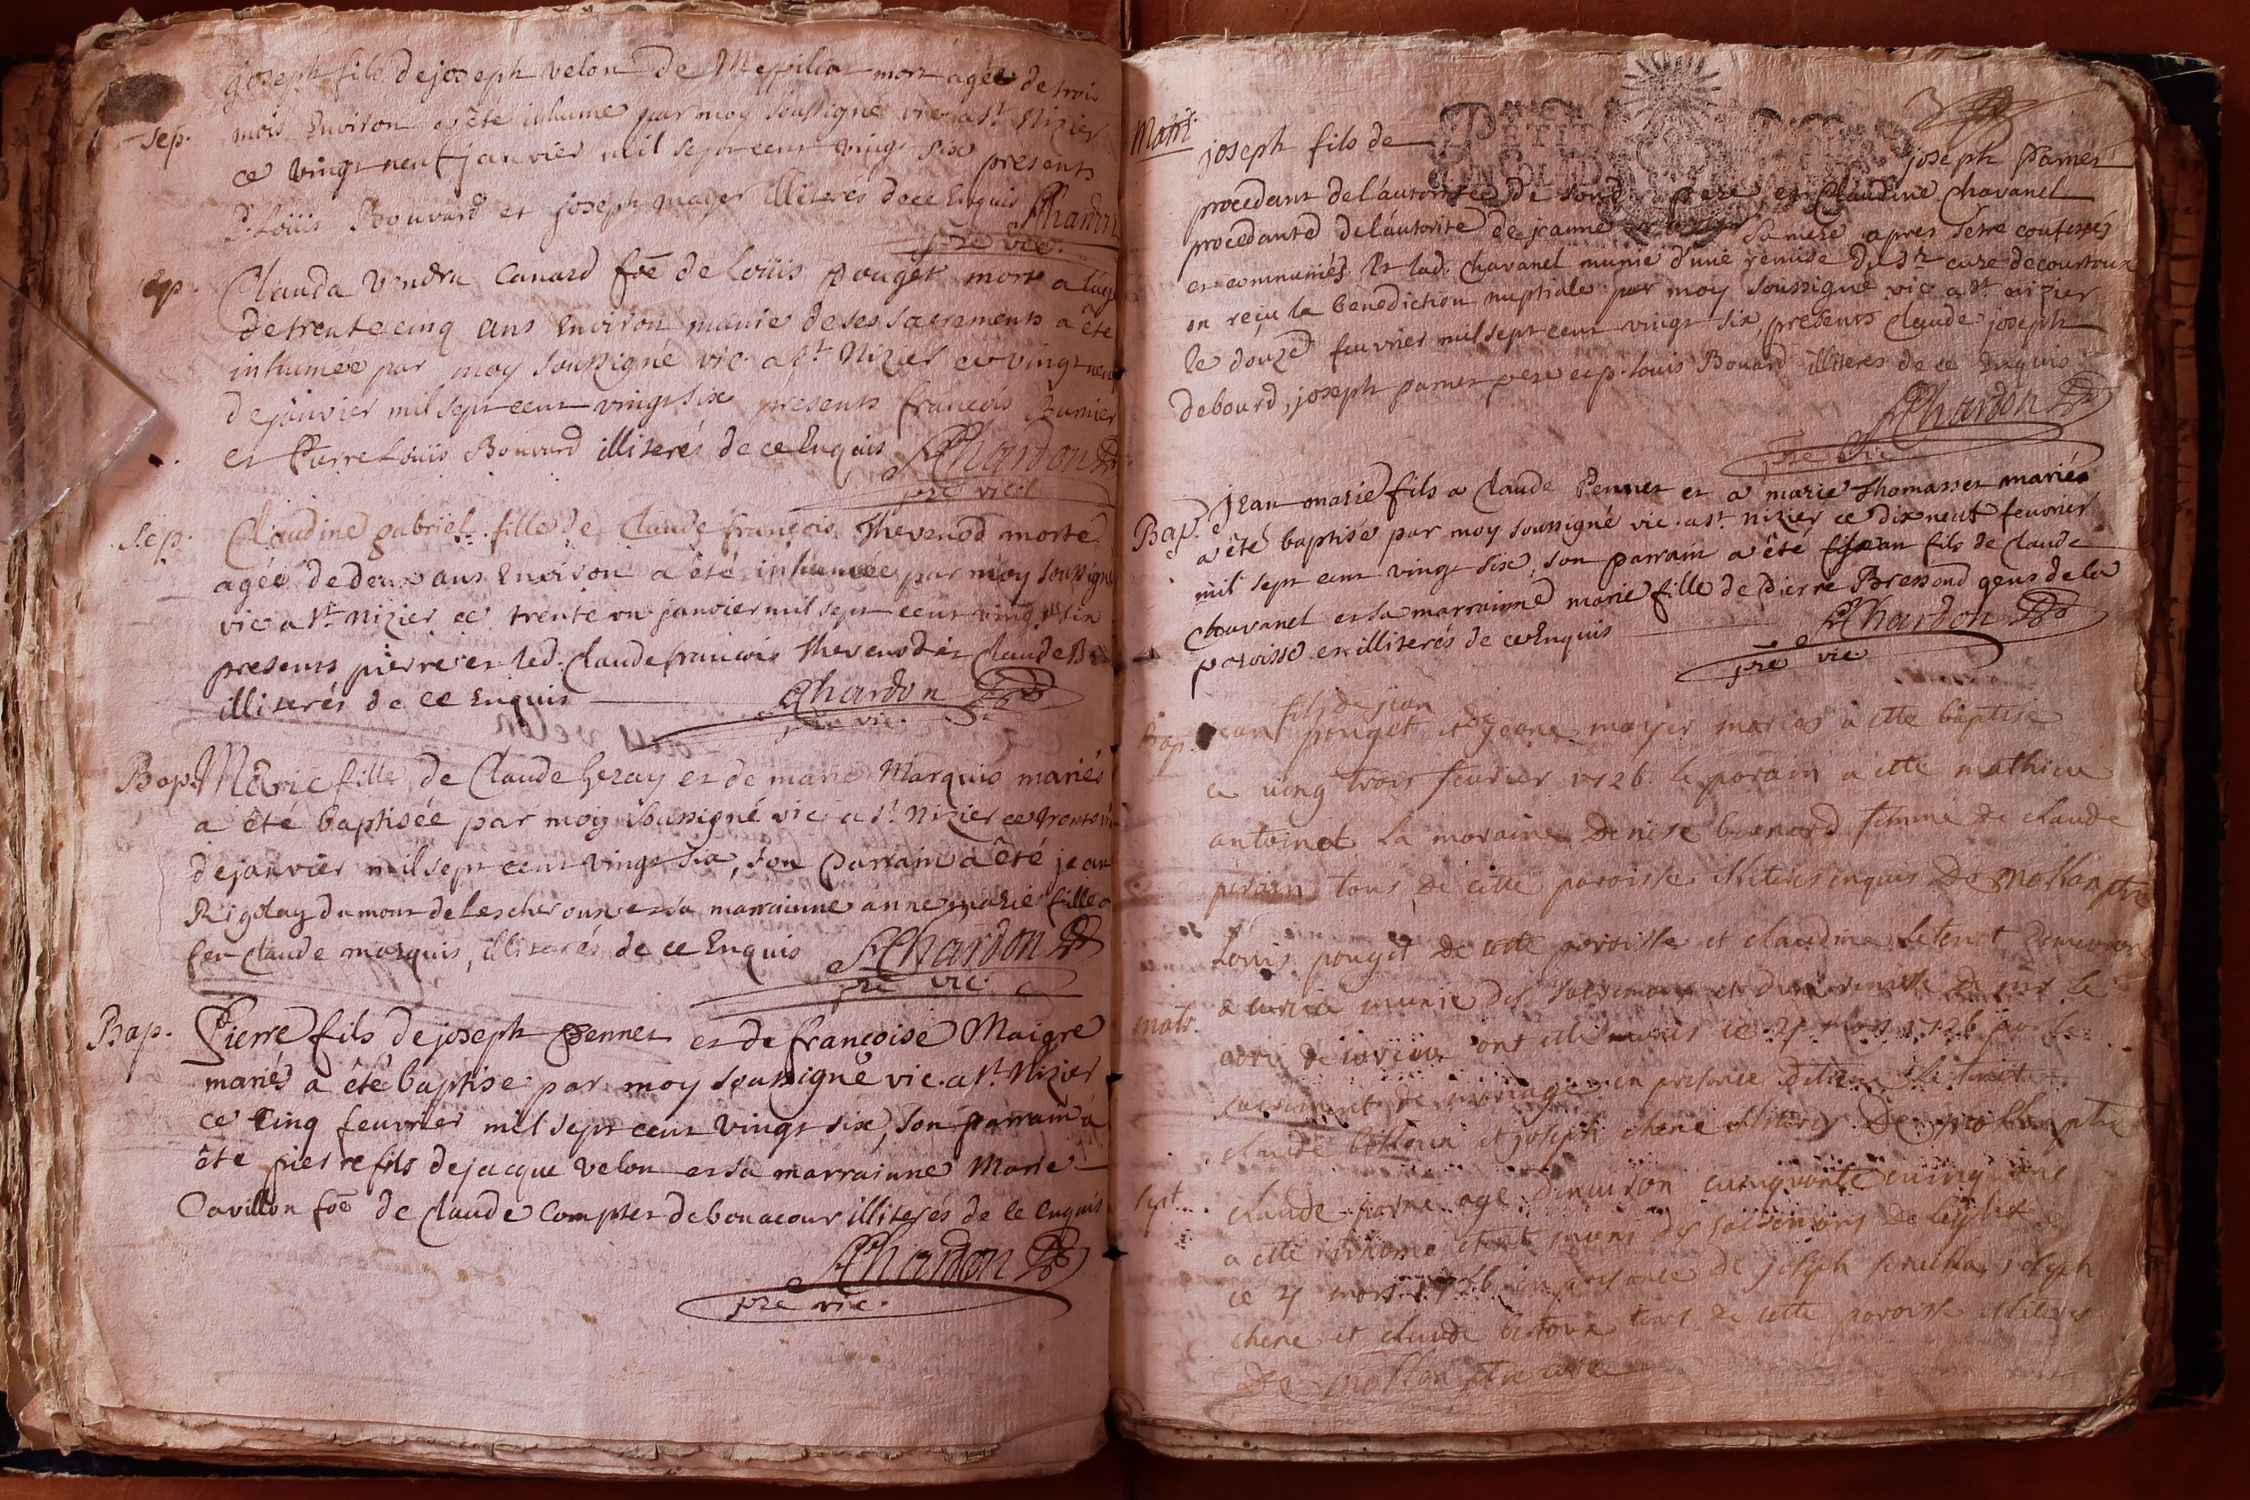 joseph fils de joseph velon de Meppilia mort agée de trois
Sep. mois Environ a été inhume par moy soussigné vic. a st. Nizier
ce vingt neuf janvier mil sept cent vingt six presents
P. Loüis Bouvard et joseph mayer illiterés de ce Enquis Chardon
pre vic.
Sep. Clauda Vendru Canard foe de Loüis Pouget morte a l'age
de trente cinq ans Environ munie de ses sacrements a été
inhumée par moy soussigné vic. a st. Nizier ce vingt neuf
de janvier mil sept cent vingt six presents francois
et Pierre Loüis Bouvard illiterés de ce Enquis Chardon
pre vic.
Sep. Claudine gabriel fille de Claude francois Thevenod morte
agée de deux ans Environ a été inhumée par moy soussigné
vic. a st. Nizier ce trente un janvier mil sept cent vingt six
presents pierre et led. Claude francois Thevenod et Claude
illiterés de ce Enquis Chardon
pre vic.
Bap. Marie fille de Claude Geray et de marie Marquis mariés
a été baptisée par moy soussigné vic. a st. Nizier ce trente un
de janvier mil sept cent vingt six, son Parrain a été jean
Rigolay du mont de Lescheroux et sa marrainne anne marie fille a
feu Claude marquis, illiterés de ce Enquis Chardon
pre vic.
Bap. Pierre fils de joseph Pennet et de francoise Maigre
mariés a été baptisé par moy soussigné vic. a st. Nizier
ce Cinq feuvrier mil sept cent vingt six, son parrain a
été pierre fils de jacque velon et sa marrainne Marie
Cavillon foe de Claude Compter de bonacour illiterés de ce Enquis
Chardon
pre vic.
Mari. joseph fils de joseph Pamet
procedant de l'autorisée de sond. pere et Claudine Chavanel
procedante de l'autorité de jeanne sa mere apres s'etre confessés
et communiés et lad. Chavanel munie d'une remise du sr. curé de courtoux
on reçu la benediction nuptiale par moy soussigné vic. a st. nizier
le douze feuvrier mil sept cent vingt six, presents Claude joseph
debourd, joseph pamet pere et p. Louis Bouard illiteres de ce Enquis
Chardon
pre vic.
Bap. Jean marie fils a Claude Pennet et a marie Thomasset mariés
a été baptisé par moy soussigné vic. a st. nizier ce dix neuf feuvrier
mil sept cent vingt six, son parrain a été jean fils de Claude
Chavanel et sa marrainne marie fille de pierre Bressoud gens de la
paroisse et illiterés de ce Enquis Chardon
pre vic
fils de jean
Bap. jean pouget et de jeane mayer maries a ette baptise
ce ving trois fevrier 1726. le parain a ette mathieu
antoinet la maraine denise benard femme de claude
perain tous de cette paroisse illiteres enquis De Mollan ptre
Louis pouget de cette paroisse et claudine
matr. munie des sacremens et
curé de ont ette ce 21 mars 1726 par le
sacrement de mariage en presence
claude et joseph chene illiteres De Mollan ptre
Sept. claude agé denviron cinquante cinq ans
a ette inhume etent muni des sacremens de leglise
ce 21 mars 1726 en presence de joseph joseph
chene et claude tous de cette paroisse illiteres
De Mollan ptre